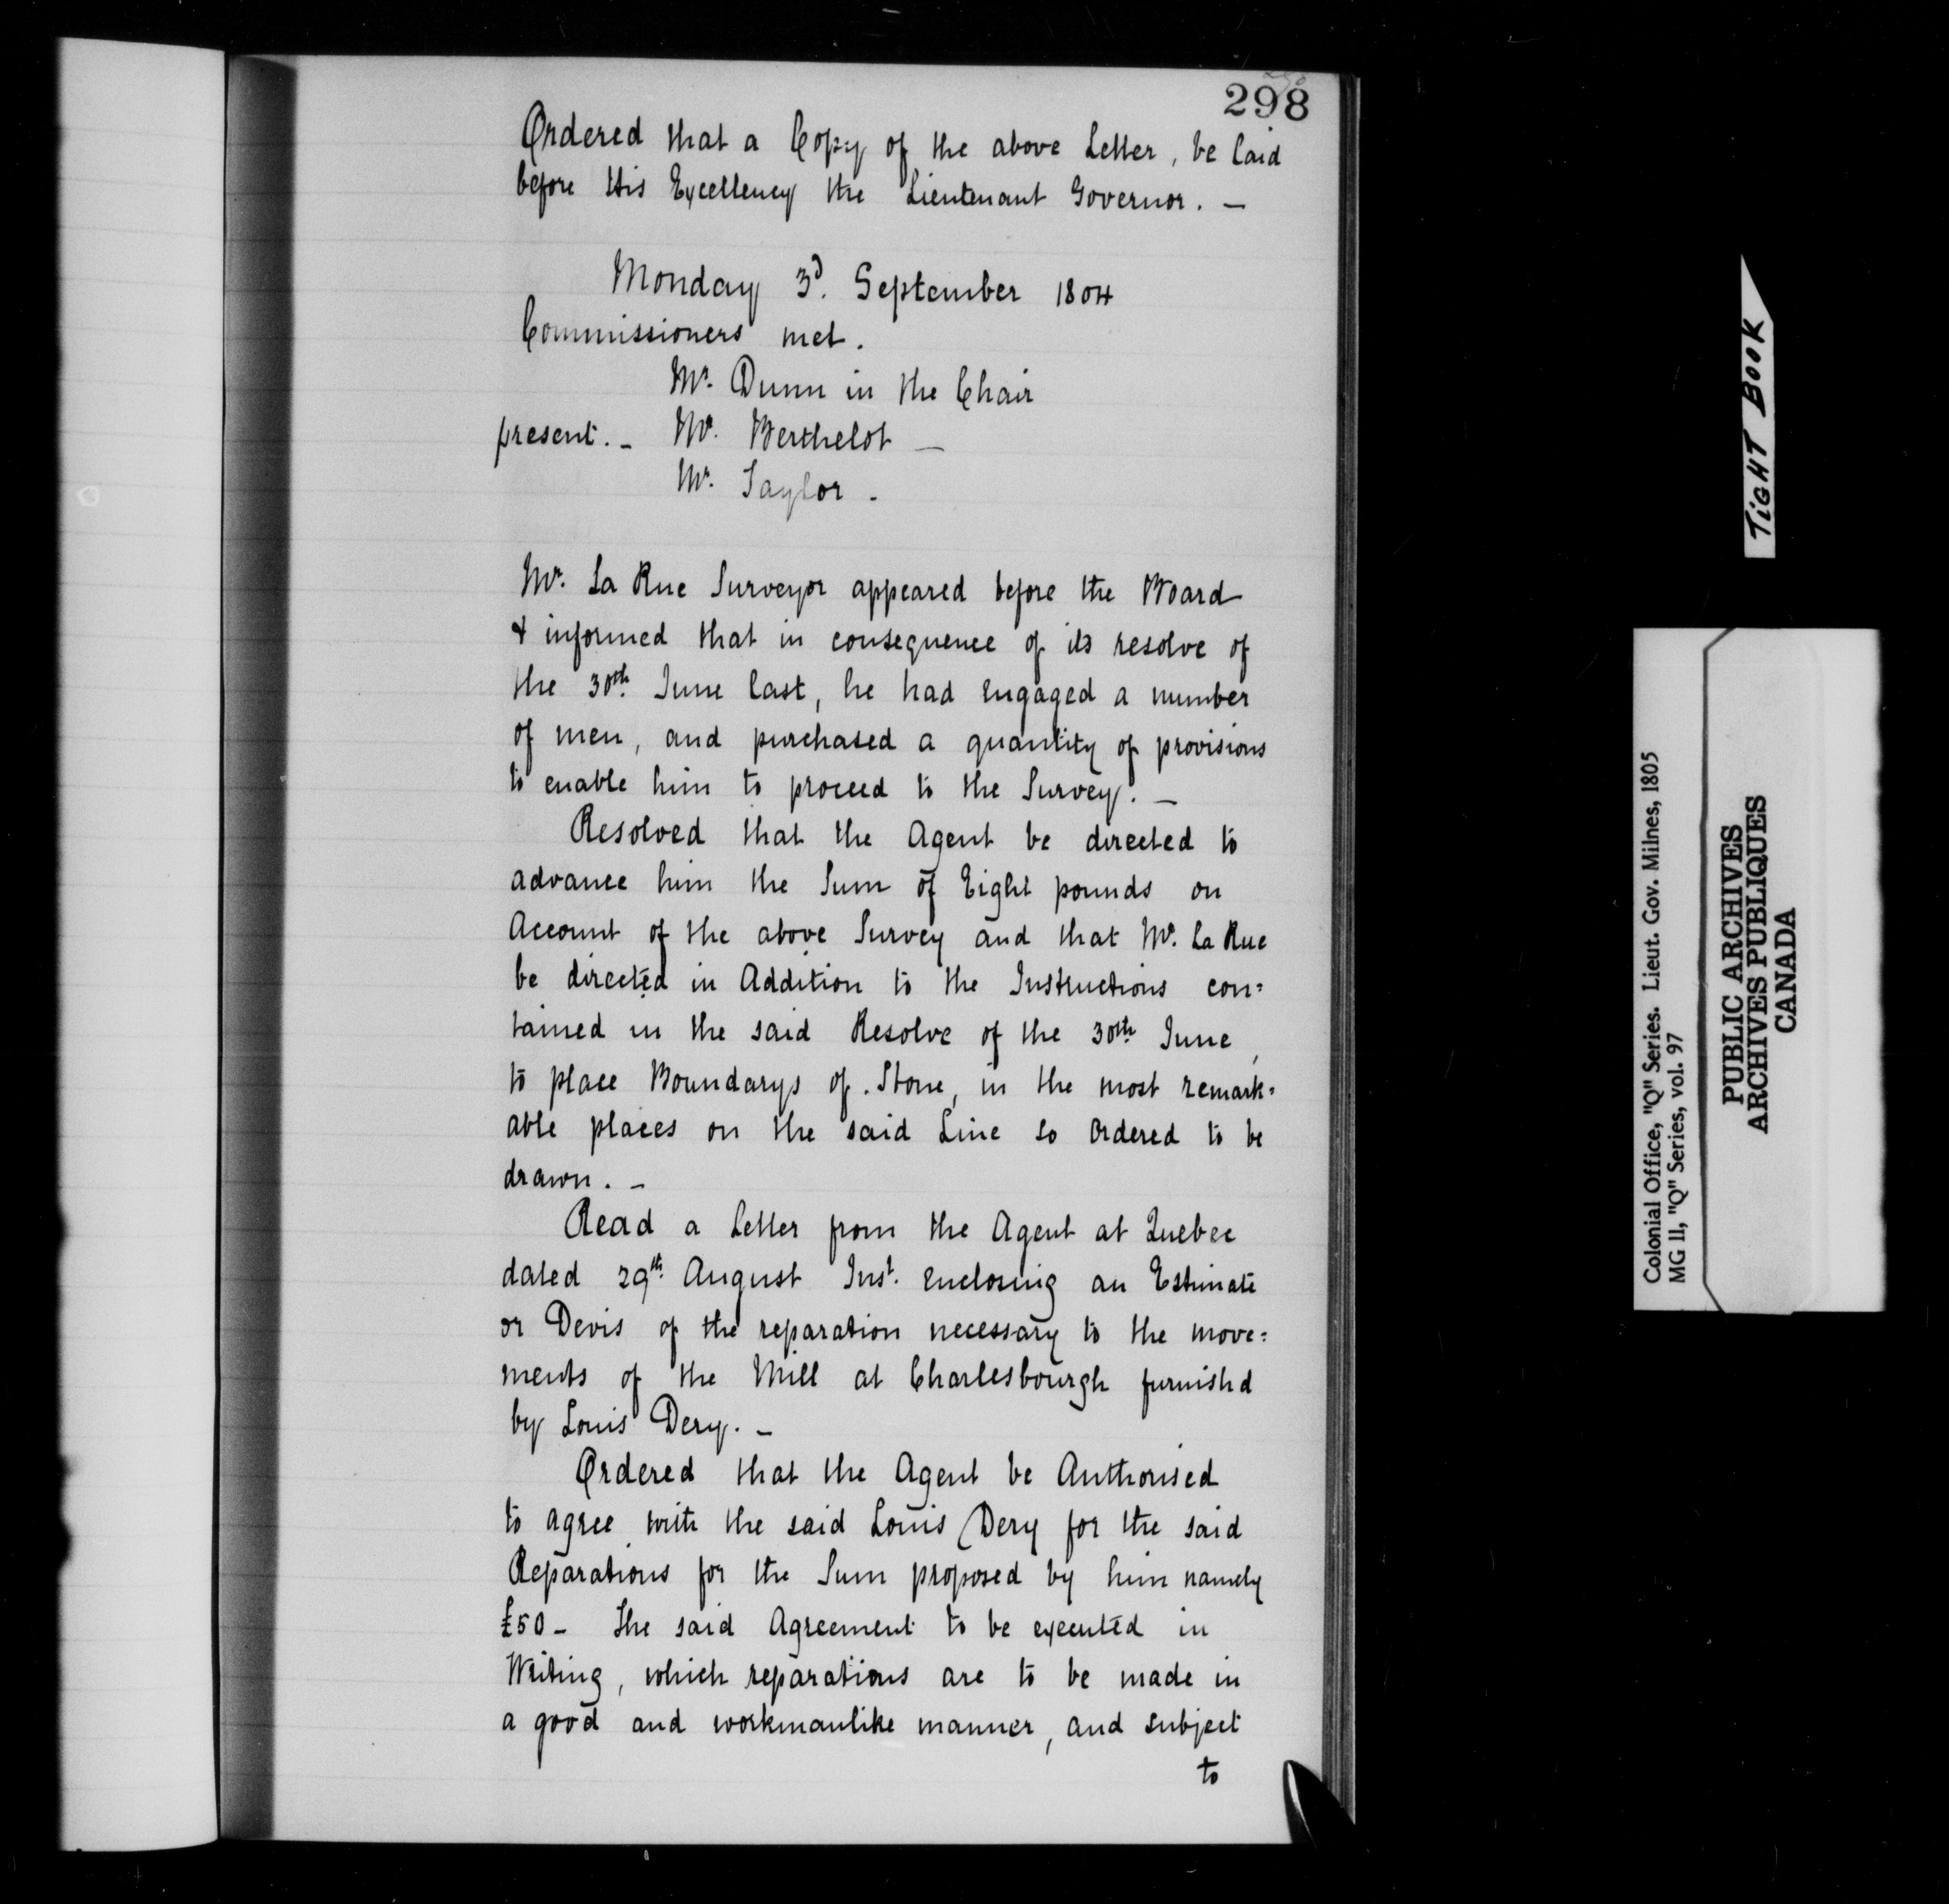 298
Ordered that a Copy of the above Letter, be laid
before His Excellency the Lieutenant Governor. —
Monday 3d. September 1804
Commissioners met.
Mr. Dunn in the Chair
present. — Mr. Berthelot —
Mr. Taylor.
Mr. La Rue Surveyor appeared before the Board
& informed that in consequence of its resolve of
the 30th. June last, he had engaged a number
of men, and purchased a quantity of provisions
to enable him to proceed to the Survey. —
Resolved that the Agent be directed to
advance him the Sum of Eight pounds on
Account of the above Survey and that Mr. La Rue
be directed in Addition to the Instructions con=
tained in the said Resolve of the 30th. June,
to place Boundarys of Stone, in the most remark=
able places on the said Line so Ordered to be
drawn. —
Read a Letter from the Agent at Quebec
dated 29th. August Inst. enclosing an Estimate
or Devis of the reparation necessary to the move=
ments of the Mill at Charlesbourgh furnish'd
by Louis Dery. —
Ordered that the Agent be Authorised
to agree with the said Louis Dery for the said
Reparations for the Sum proposed by him namely
£50 — The said Agreement to be executed in
Writing, which reparations are to be made in
a good and workmanlike manner, and subject
to
TIGHT BOOK
Colonial Office, "Q" Series. Lieut. Gov. Milnes, 1805
MG 11, "Q" Series, vol. 97
PUBLIC ARCHIVES
ARCHIVES PUBLIQUES
CANADA